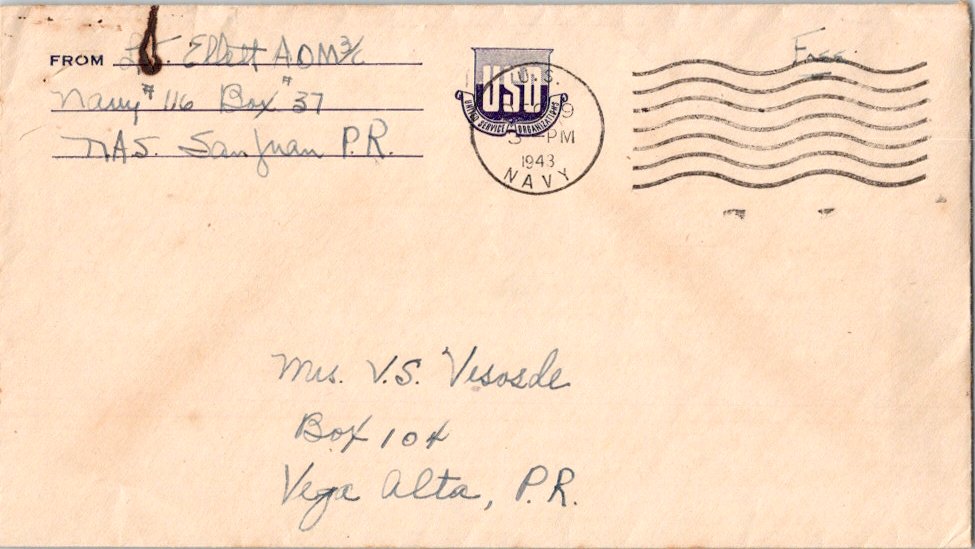 FROM L. J. Ellett AOM3/c
Navy # 116 Box # 37
NAS. San Juan P.R.
USO
UNITED SERVICE ORGANIZATIONS
U.S.
9
3 - PM
1943
NAVY
Free
Mrs. V.S. Vesosde
Box 104
Vega Alta, P.R.